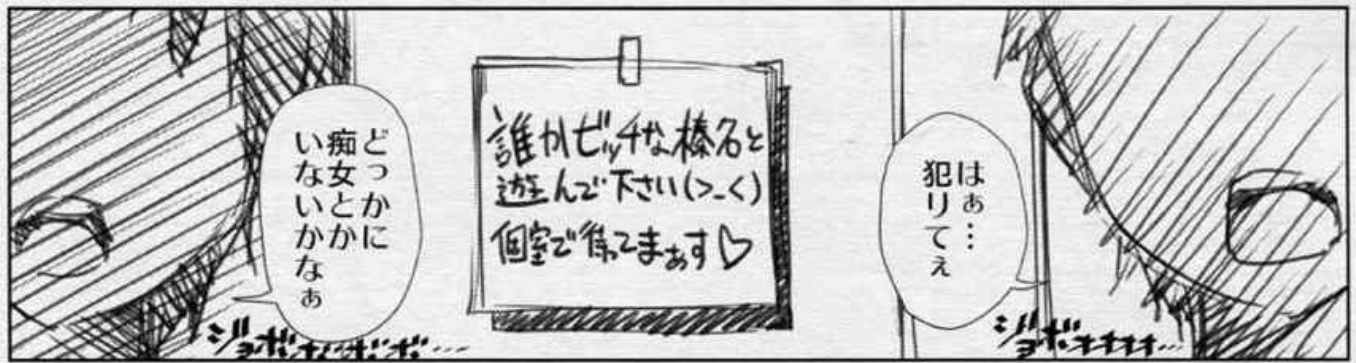 はぁ…
犯りてぇ
ジョボ
誰かビッチな榛名と
遊んで下さい(>_<)
個室で待ってまぁす♡
どっかに
痴女とか
いないかなぁ
ジョボ